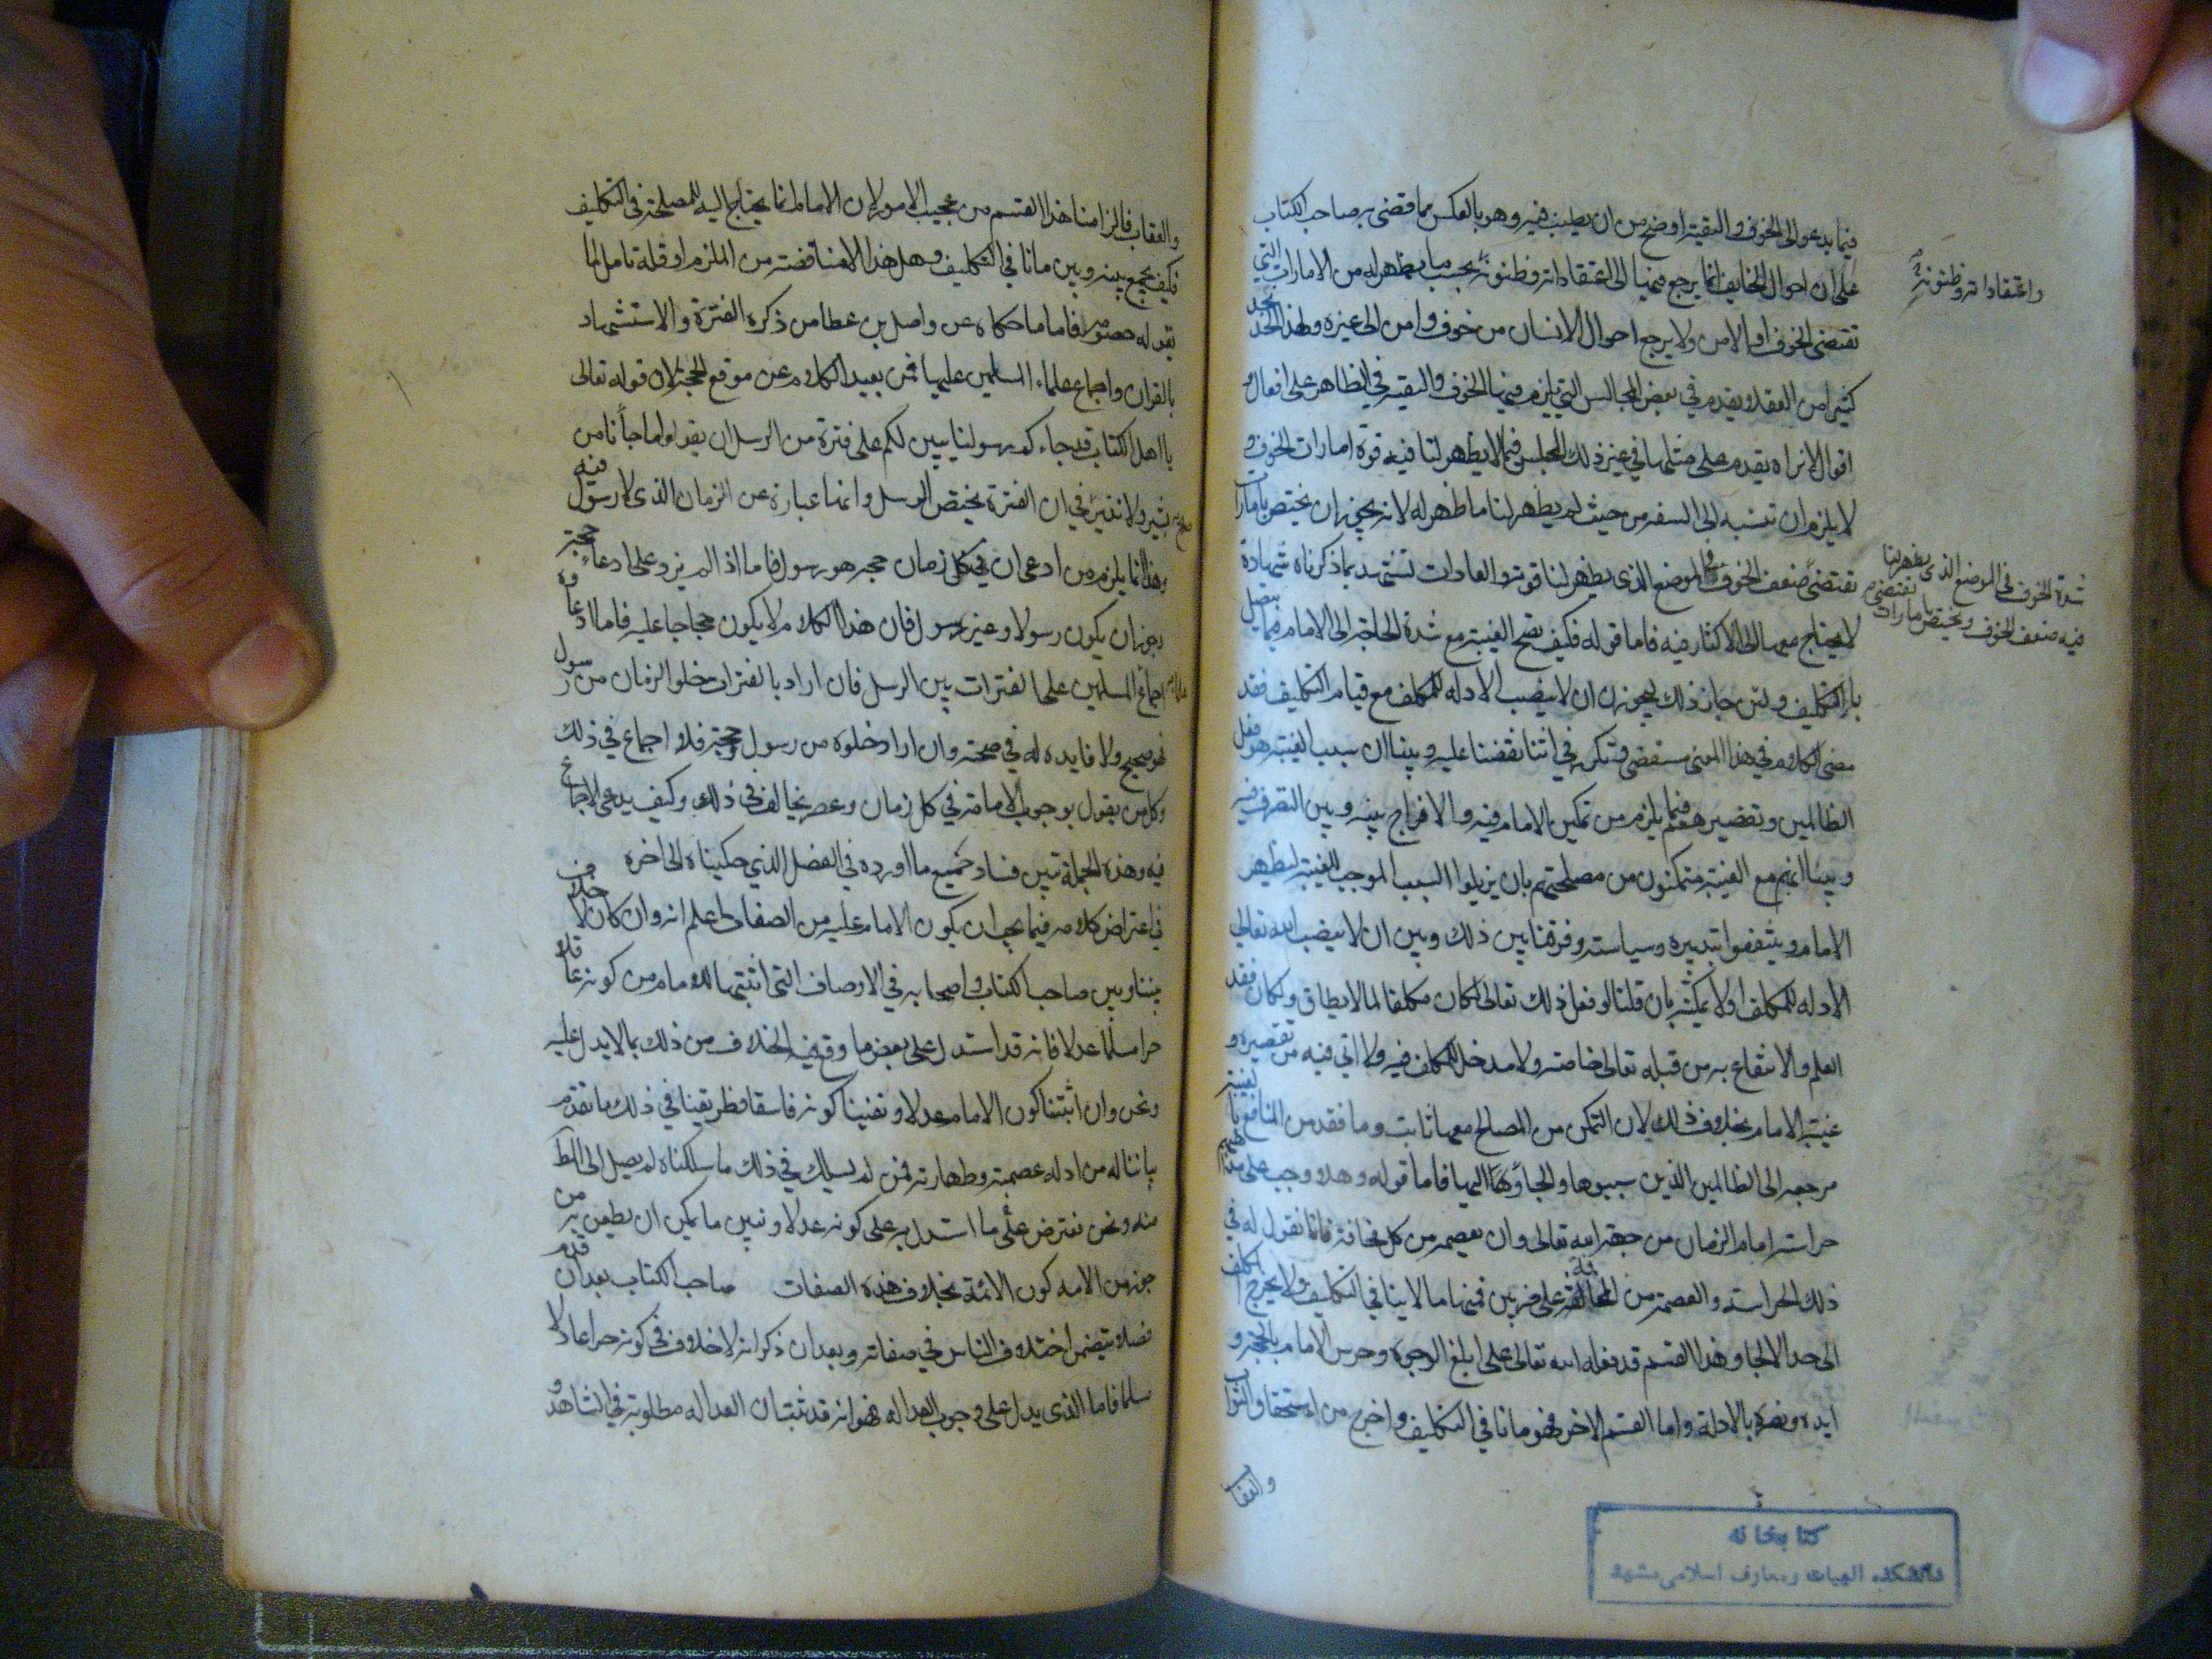 فيما يدعو الى الخوف والتقية اوضح من ان يطنب فيه وهو بالعكس مما قضى به صاحب الكتاب
على ان احوال الخايف انما يرجع فيها الى اعتقاداته وظنونه بحسب ما يظهر له من الامارات التي
واعتقاداته وظنونه
تقتضى الخوف او الامن ولا يرجع احوال الانسان من خوف وامن الى غيره ولهذا نجد
كثيرا من العقلا يقدم في بعض المجالس التي يلزم فيها الخوف والتقية في الظاهر على افعال و
اقوال لا نراه يقدم على مثلها في غير ذلك المجلس فيما لا يظهر لنا فيه قوة امارات الخوف و
لا يلزم ان ننسبه الى السفه من حيث لم يظهر لنا ما ظهر له لانه يجوز ان يختص بامارات
تقتضى ضعف الخوف في الموضع الذى يظهر لنا قوته والعادات تشهد بما ذكرناه شهادة
شدة الخوف فى الموضع الذى يظهر لنا
فيه ضعف الخوف ويختص بامارات تقتضى
لا يحتاج معها الى الاكثار فيه فاما قوله فكيف تصح الغيبة مع شدة الحاجة الى الامام فيما يتصل
بالتكليف ولئن جاز ذلك ليجوزن ان لا ينصب الادله للمكلف مع قيام التكليف فقد
مضى الكلام في هذا المعنى مستقصى وتكرر في اثنا نقضنا عليه وبينا ان سبب الغيبة هو فعل
الظالمين وتقصيرهم فيما يلزم من تمكين الامام فيه والافراج بينه وبين التصرف فيه
وبينا انهم مع الغيبة متمكنون من مصلحتهم بان يزيلوا السبب الموجب للغيبة ليظهر
الامام وينتفعوا بتدبيره وسياسته وفرقنا بين ذلك وبين ان لا ينصب الله تعالى
الادله للمكلف اولا بان قلنا لو فعل ذلك تعالى لكان مكلفا لما لا يطاق ولكان فقد
العلم والانتفاع به من قبله تعالى خاصة ولا مدخل للمكلف فيه ولا اتى فيه من تقصيره و
غيبة الامام بخلاف ذلك لان التمكن من المصالح معها ثابت وما فقد من المنافع بالغيبة
مرجعه الى الظالمين الذين سببوها والجاوا اليها فاما قوله وهلا وجب على
حراسة امام الزمان من جهة الله تعالى وان يعصمه من كل مخافة فانا نقول له في
ذلك الحراسة والعصمة من المخافة على ضربين فمنها ما لا ينافي التكليف ولا يخرج المكلف
الى حد الالجا وهذا القسم قد فعله الله تعالى على ابلغ الوجوه وحرس الامام بالحجة و
ايده ونصره بالادلة واما القسم الاخر فهو ما نافى التكليف واخرج من استحقاق الثواب
والعقاب
كتابخانه
دانشكده الهيات ومعارف اسلامى مشهد
والعقاب فالزامنا هذا القسم من عجيب الامور لان الامام انما يحتاج اليه للمصلحة في التكليف
فكيف يجمع بينه وبين ما نافى التكليف وهل هذا الا مناقضة من الملزم او قلة تامل لما
يقوله خصومه فاما ما حكاه عن واصل بن عطا من ذكره الفترة والاستشهاد
بالقران واجماع علماء المسلمين عليها فمن بعيد الكلام عن موقع الحجة لان قوله تعالى
يا اهل الكتاب قد جاءكم رسولنا يبين لكم على فترة من الرسل ان يقولوا ما جاءنا من
بشير ولا نذير في ان الفترة يختص الرسل وانها عبارة عن الزمان الذى لا رسول فيه
وهذا انما يلزم من ادعى ان في كل زمان حجة هو رسول فاما اذا لم نزد على ادعاء حجة
يجوز ان يكون رسولا وغير رسول فان هذا الكلام لا يكون حجاجا عليه فاما ادعاوه
اجماع المسلمين على الفترات بين الرسل فان اراد بالفترات خلو الزمان من رسول
فهو صحيح ولا فايده له في صحته وان اراد خلوه من رسول وحجة فلا اجماع في ذلك
وكل من يقول بوجوب الامامة في كل زمان وعصر يخالف في ذلك وكيف يدعى الاجماع
فيه وهذه الجملة تبين فساد جميع ما اورده في الفصل الذي حكيناه الى اخره
في اعتراض كلامه فيما يجب ان يكون الامام عليه من الصفات اعلم انه وان كان لا خلاف
بيننا وبين صاحب الكتاب واصحابه في الاوصاف التى اثبتها للامام من كونه عاقلا
حرا مسلما عدلا فانه قد استدل على بعض ما وقع فيه الخلاف من ذلك بما لا يدل عليه
ونحن وان اثبتنا كون الامام عدلا ونفينا كونه فاسقا فطريقنا في ذلك ما تقدم
بياننا له من ادله عصمته وطهارته فمن لم يسلك في ذلك ما سلكناه لم يصل الى
منه ونحن نعترض على ما استدل به على كونه عدلا ونبين ما يمكن ان يطعن به من
جوز من الامه كون الائمة بخلاف هذه الصفات صاحب الكتاب بعد ان قدم
فصلا يتضمن اختلاف الناس في صفاته وبعد ان ذكر انه لا خلاف في كونه حرا عاقلا
مسلما فاما الذى يدل على وجوب العداله فهو انه قد ثبت ان العداله مطلوبة في الشاهد و